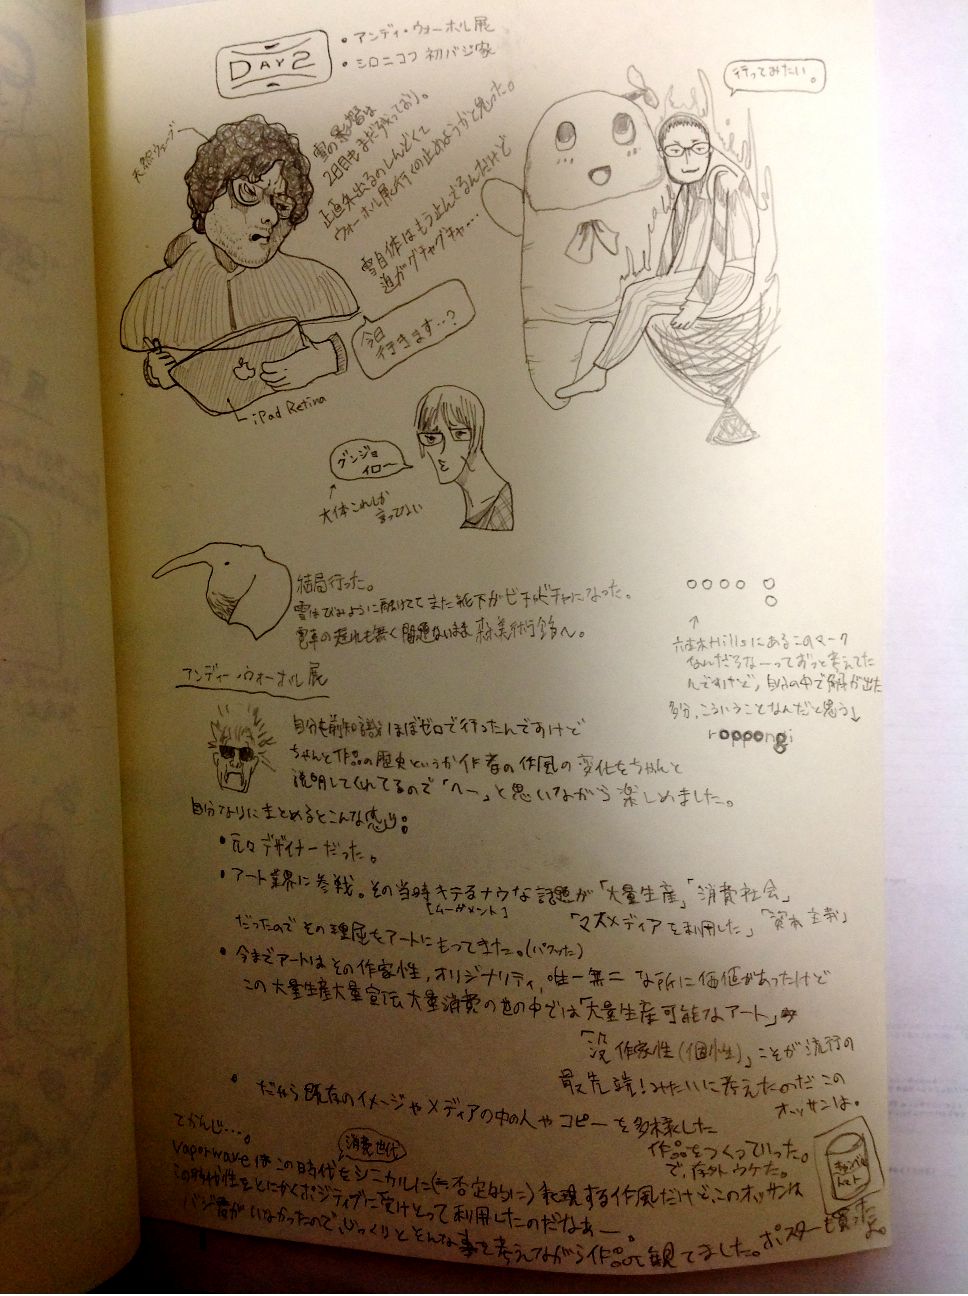 DAY 2
・アンディ・ウォーホル展
・シロニコフ 初バジ家
行ってみたい。
天然ウェーブ
雪の影響は
2日目もまだ残っており。
正直外出るのしんどくて
ウォーホル展行くの止めようかと思った。
雪自体はもう止んでるんだけど
道がグチャグチャ…
今日
行きます…?
iPad Retina
グンジョ
イロ〜
↑
大体これしか
言ってない
結局行った。
雪はびみょうに融けててまた靴下がビチャビチャになった。
電車の遅れも無く問題ないまま森美術館へ。
○○○○ ○
○
↑
六本木Hillsにあるこのマーク
なんだろなーってずっと考えてた
んですけど、自分の中で解が出た
多分、こういうことなんだと思う↓
roppongi
アンディー・ウォーホル展
自分も前知識ほぼゼロで行ったんですけど
ちゃんと作品の歴史というか作者の作風の変化をちゃんと
説明してくれてるので「へー」と思いながら楽しめました。
自分なりにまとめるとこんな感じ:
・元々デザイナーだった。
・アート業界に参戦。その当時キテるナウな話題が「大量生産」「消費社会」
[ムーブメント]
「マスメディアを利用した」「資本主義」
だったのでその理屈をアートにもってきた。(パクった)
・今までアートはその作家性,オリジナリティ,唯一無二な所に価値があったけど
この大量生産大量宣伝大量消費の世の中では「大量生産可能なアート」
「没作家性(個性)」こそが流行の
最先端!みたいに考えたのだこの
オッサンは。
・だから既存のイメージやメディアの中の人やコピーを多様した
作品をつくっていった。
で、存外ウケた。
てかんじ…。
消費世代
vaporwaveはこの時代をシニカルに(≒否定的に)表現する作風だけど、このオッサンは
この時代性をとにかくポジティブに受けとって利用したのだなあー
バジ君がいなかったので、じっくりとそんな事を考えながら作品って観てました。ポスターも買ったよ。
キャンベル
トマト